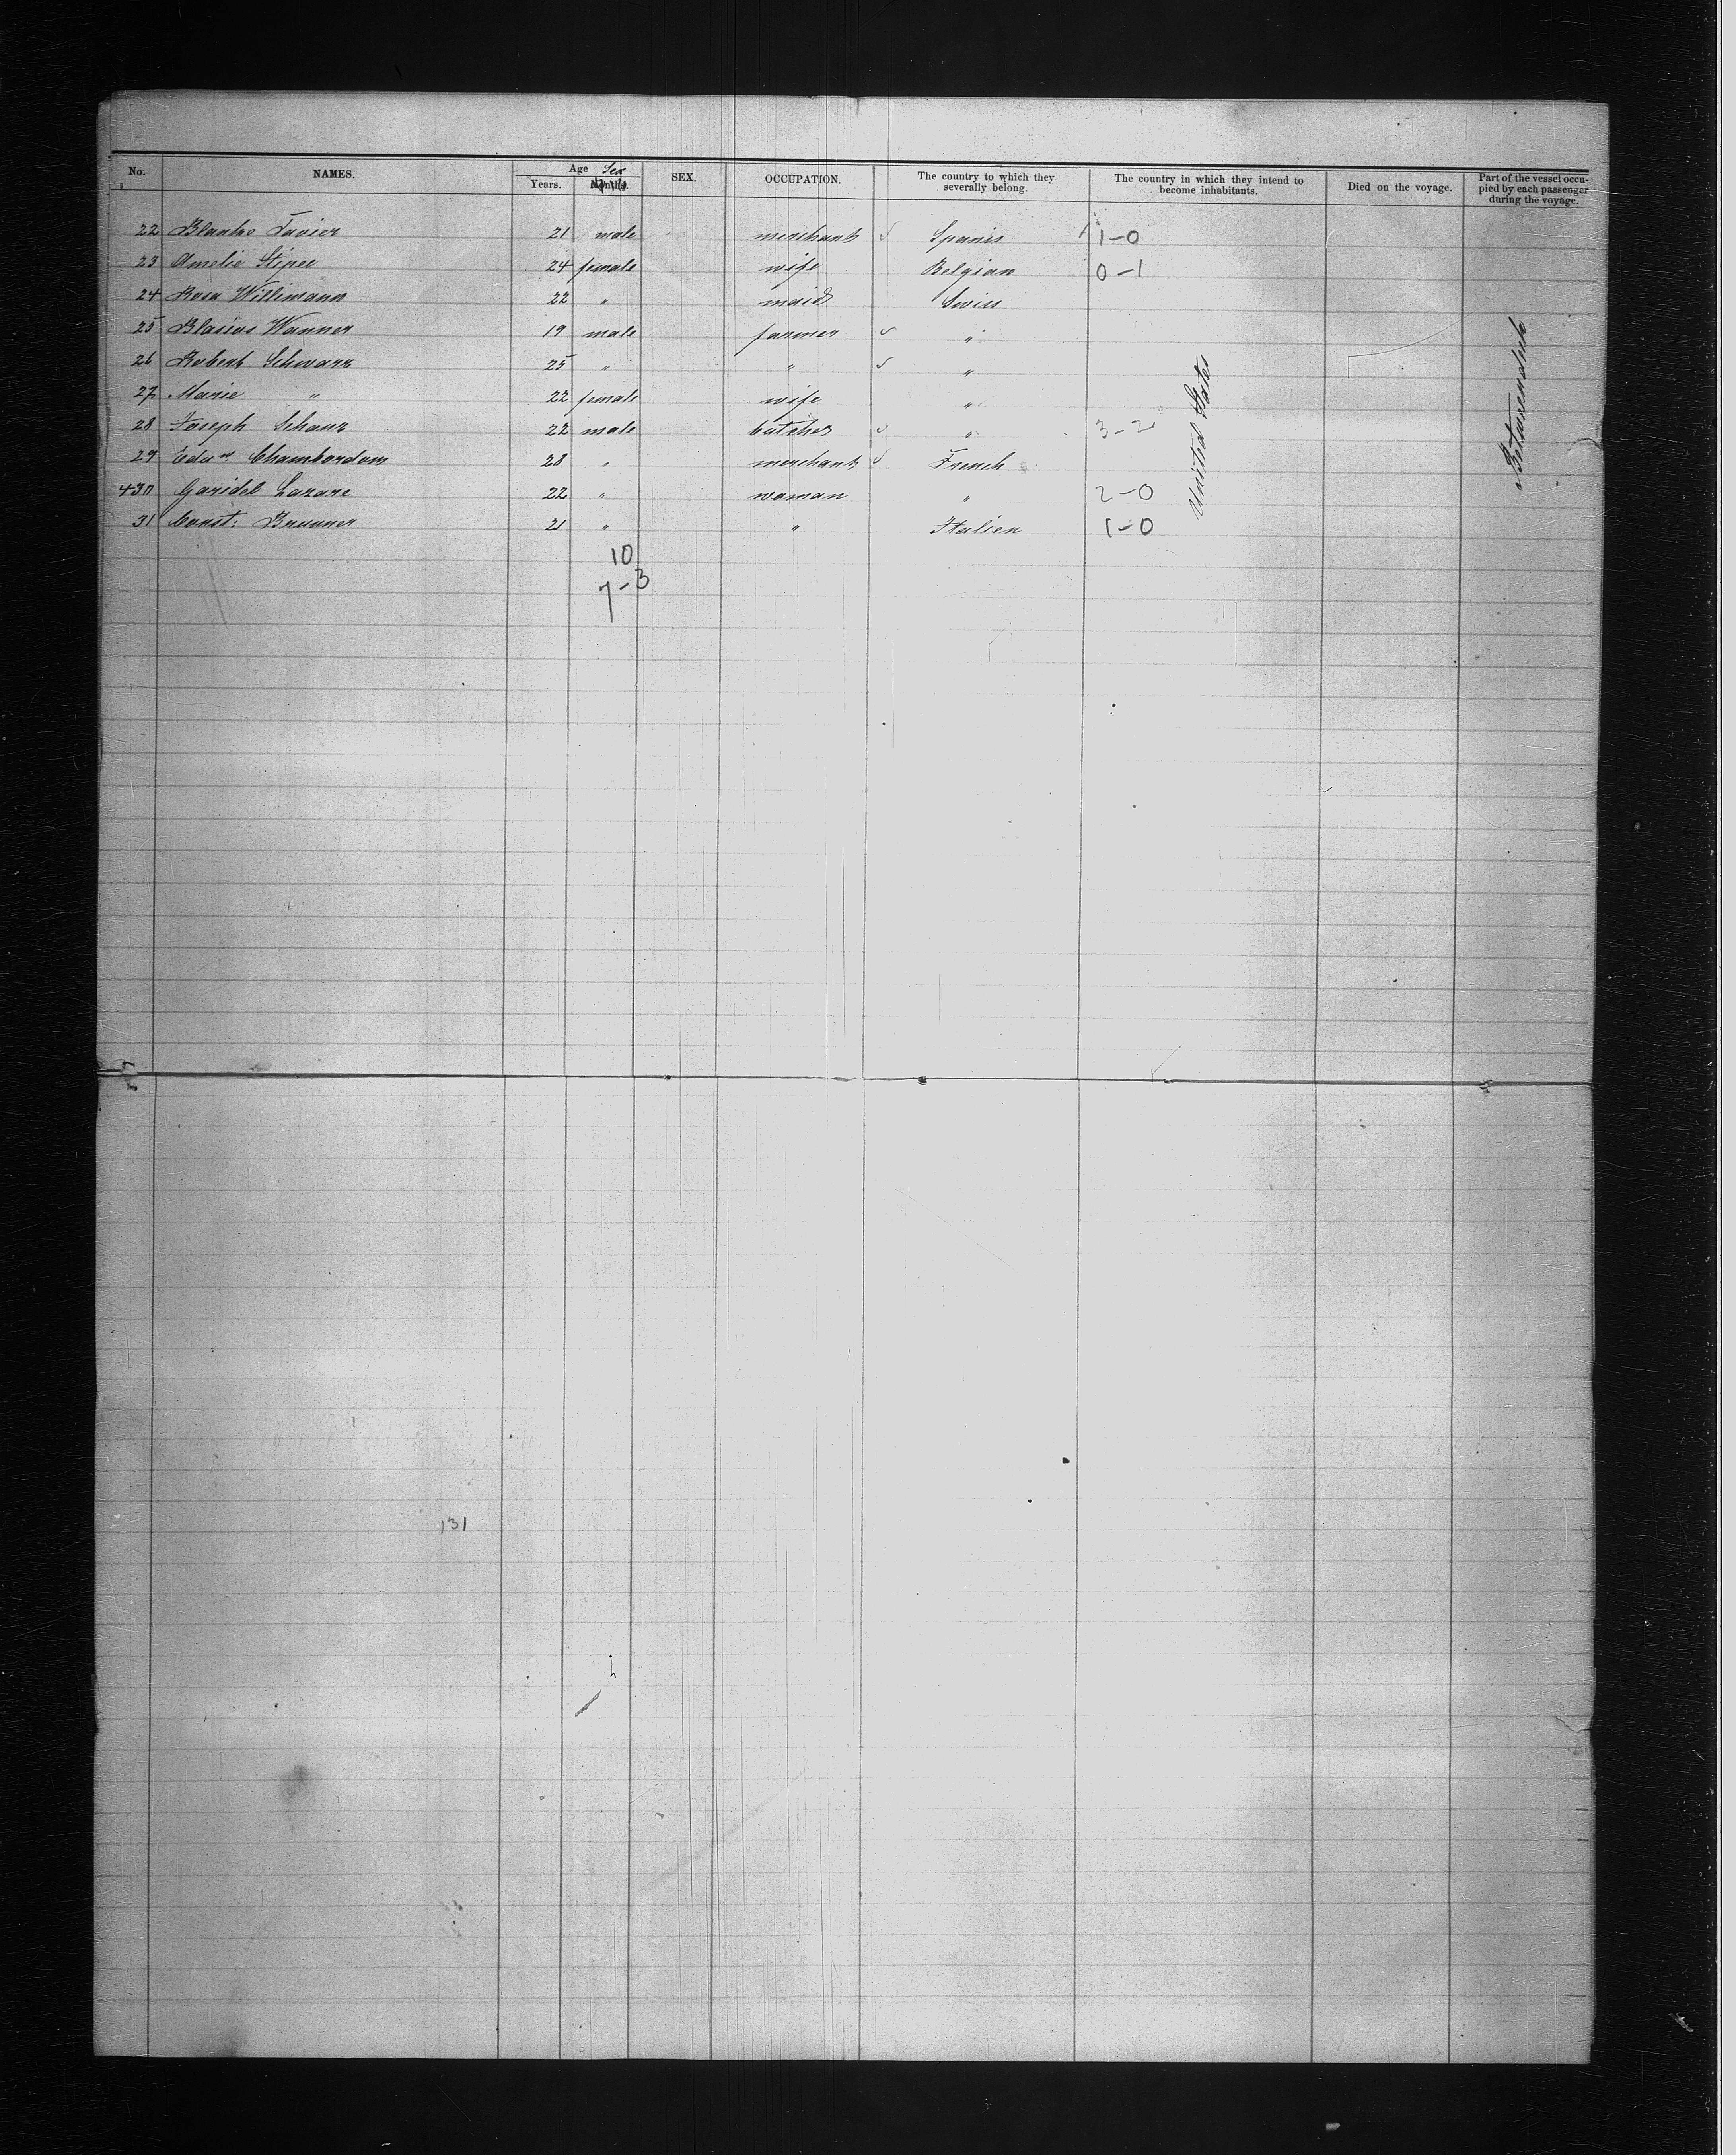 No. NAMES. Age Sex SEX. OCCUPATION. The country to which they severally belong. The country in which they intend to become inhabitants. Died on the voyage. Part of the vessel occupied by each passenger during the voyage.
Years. Months.
22 Blanke Favier 21 male merchant Spanis 1-0
23 Amelie Stipee 24 female wife Belgian 0-1
24 Rosa Willimann 22 " maid Swiss
25 Blasius Wanner 19 male farmer "
26 Robert Schwarz 25 " " "
27 Marie " 22 female wife "
28 Joseph Schanz 22 male butcher " 3-2
29 Edu Chambordom 28 " merchant French
430 Garidel Lazare 22 " waman " 2-0
31 Const: Brunner 21 " " Italien 1-0
United States
Betweendeck
10
7-3
131